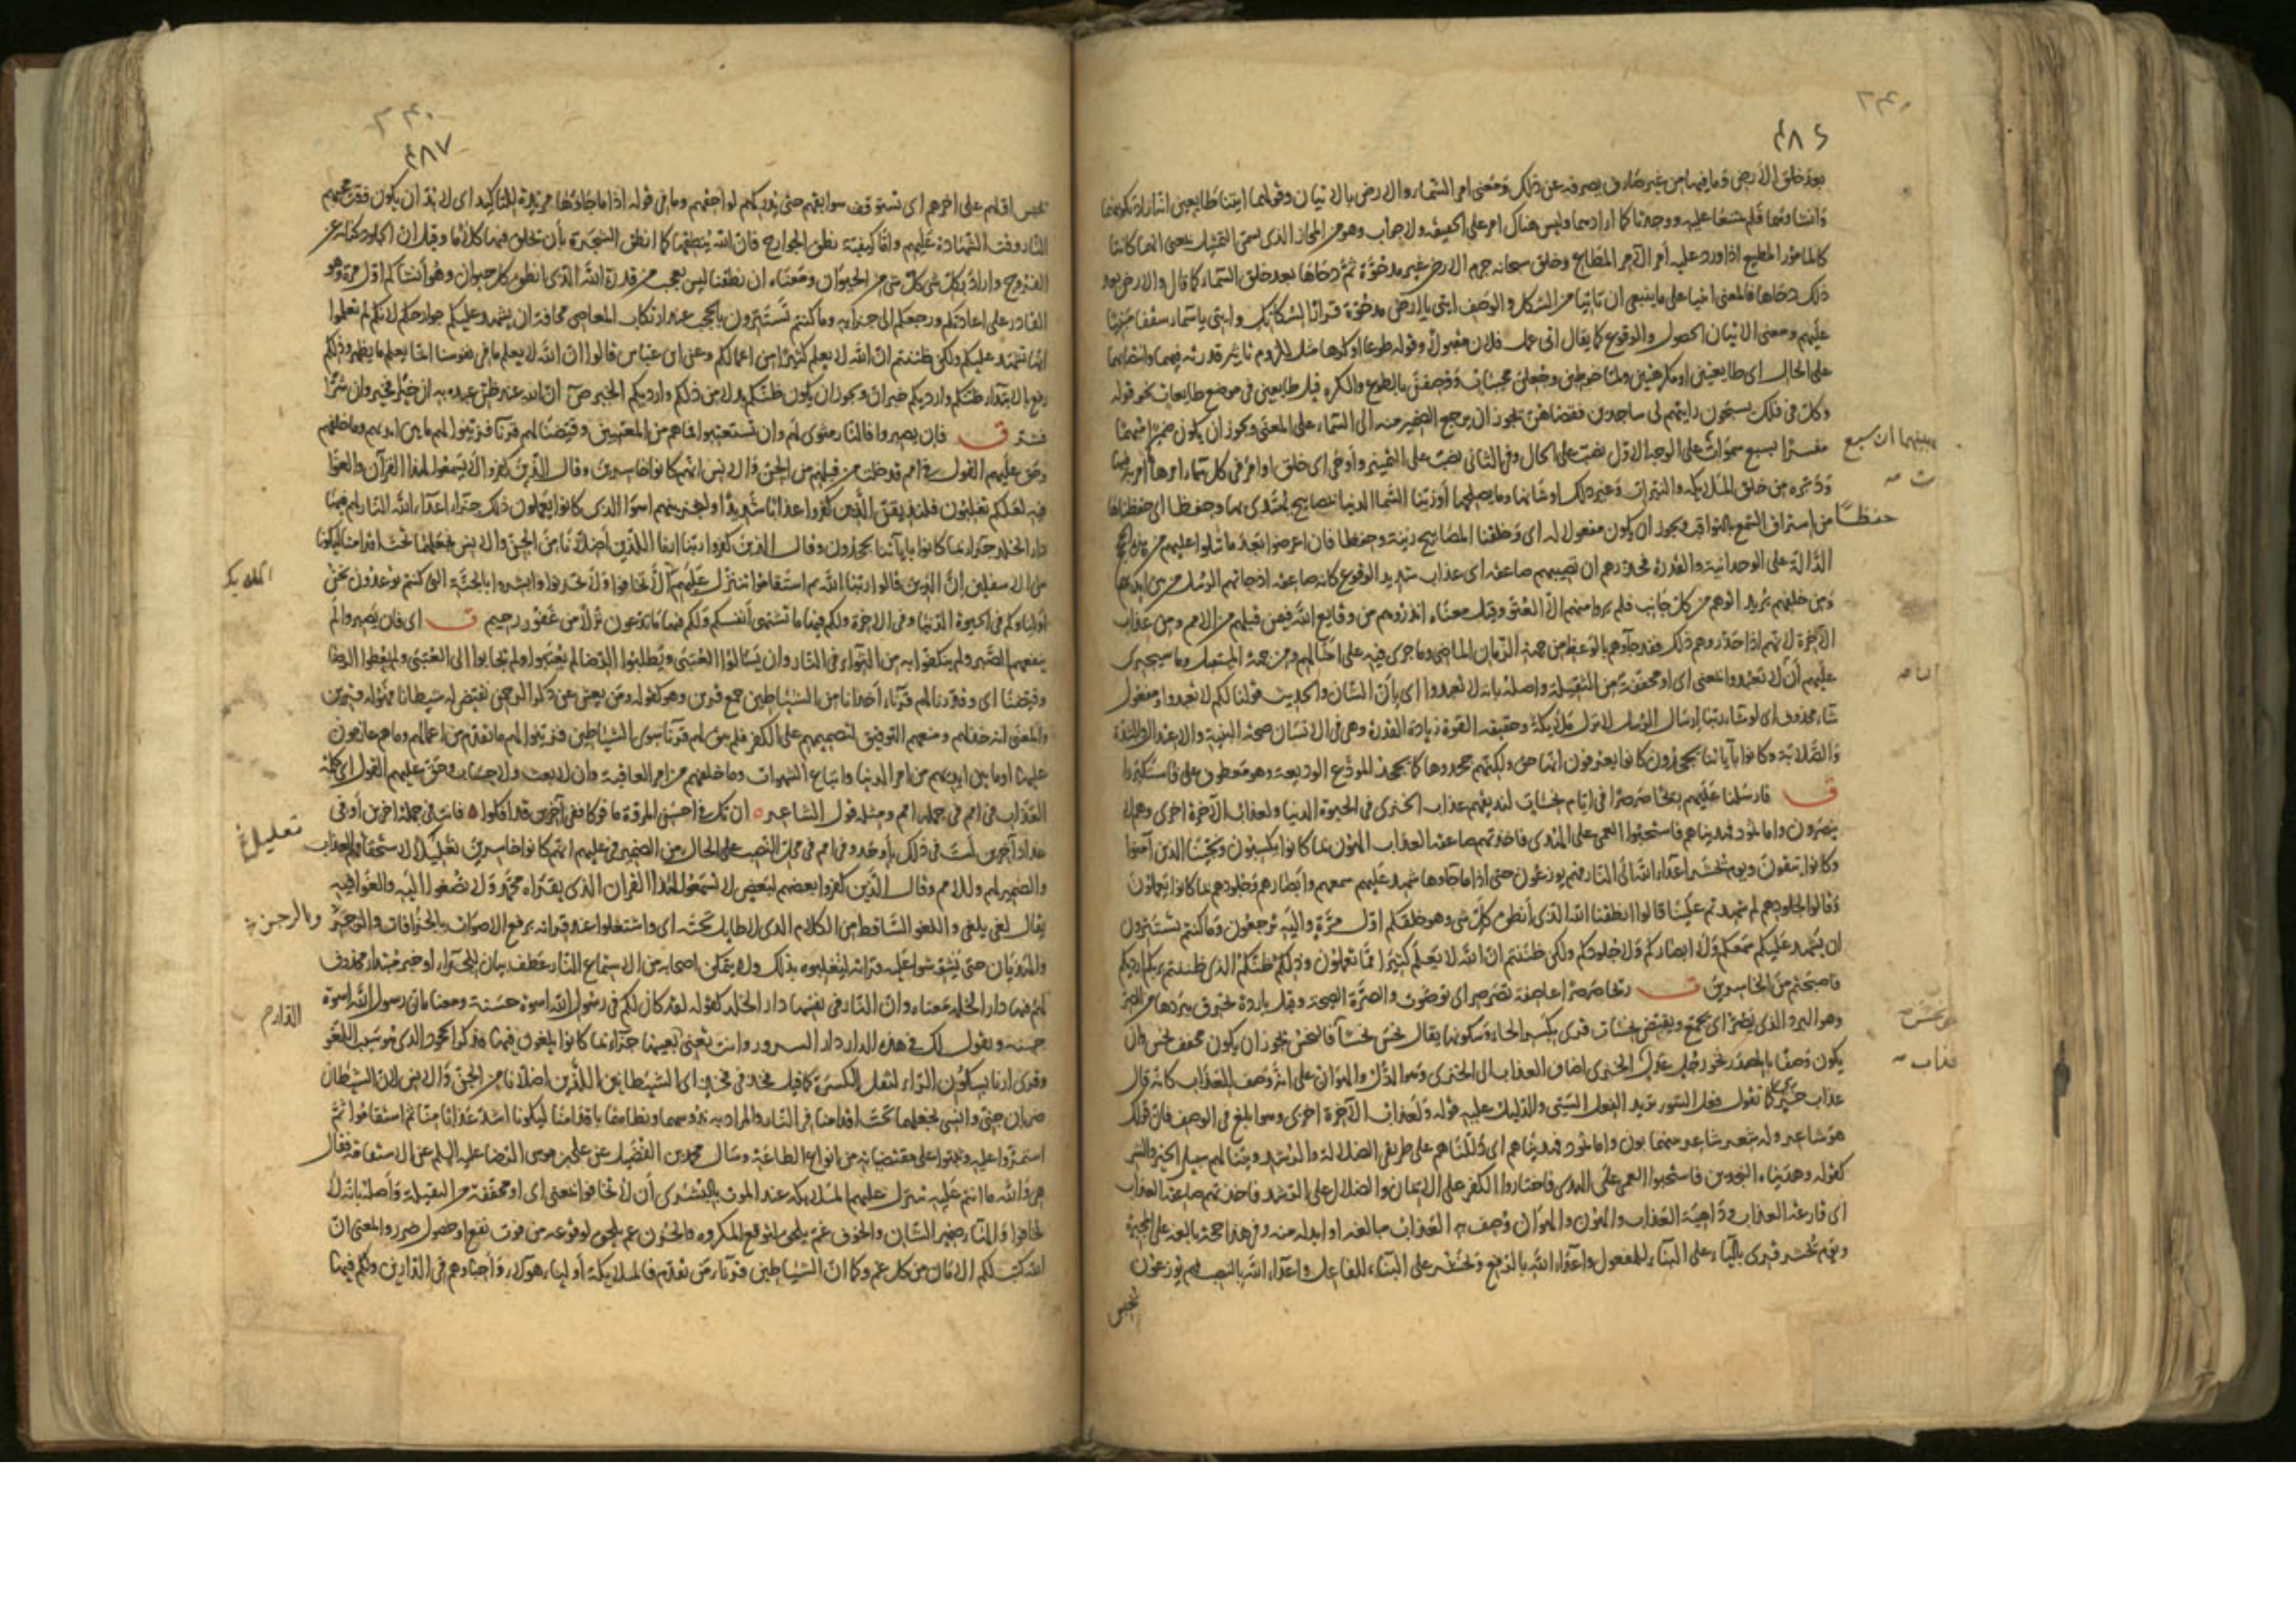 ٤٨٦
بعد خلق الأرض وما فيها من غير صارف يصرفه عن ذلك ومعنى امر السماء والارض بالاتيان وقولهما اتينا طايعين انه اراد تكوينهما
وانشاءهما فلم يمتنعا عليه ووجدتا كما ارادهما وليس هناك امر على الحقيقة ولا جواب وهو من المجاز الذى يسمى التمثيل يعنى انهما كانتا
كالمامور المطيع اذا ورد عليه أمر الآمر المطاع وخلق سبحانه جرم الارض غير مدحوة ثم دحاها بعد خلق السماء كما قال والارض بعد
ذلك دحاها فالمعنى ائتيا على ما ينبغى ان تاتيا من الشكل والوصف ايتى يا ارض مدحوة قرارا لسكانك وايتى يا سماء سقفا
عليهم ومعنى الاتيان الحصول والوقوع كما يقال اتى عمل فلان مقبولا وقوله طوعا او كرها مثل للزوم تاثير قدرته فيهما وانتصابهما
على الحال اى طايعتين او مكرهتين ولما خوطبن وجعلن مجيبات ووصفن بالطوع والكره قيل طايعين فى موضع طايعات نحو قوله
وكل فى فلك يسبحون رايتهم لى ساجدين فقضاهن يجوز ان يرجع الضمير منه الى السماء على المعنى ويجوز ان يكون ضميرا مبهما
مفسرا بسبع سموات على الوجه الاول نصب على الحال وفى الثانى نصب على التمييز وأوحى اى خلق اوامر فى كل سماء امرها
ودبره من خلق الملايكة والنيرات وغير ذلك او شانها وما يصلحها وزينا السماء الدنيا بمصابيح يهتدى بها وحفظا اى حفظناها
حفظا من استراق السمع بالثواقب ويجوز ان يكون مفعولا له اى وخلقنا المصابيح زينة وحفظا فان اعرضوا بعد ما تتلوا عليهم من الحجج
الدالة على الوحدانية والقدرة فحذرهم ان تصيبهم صاعقة اى عذاب شديد الوقوع كانه صاعقة اذ جاتهم الرسل من بين ايديهم
ومن خلفهم يريد اتوهم من كل جانب فلم يروا منهم الا العتو وقيل معناه انذروهم من وقايع الله فيمن قبلهم من الامم ومن عذاب
الآخرة لانهم اذا حذروهم ذلك فقد جاؤهم بالوعظ من جهة الزمان الماضى وما جرى فيه على امثالهم ومن جهة المستقبل وما سيجرى
عليهم أن لا تعبدوا بمعنى اى او مخففة من الثقيلة واصله بانه لا تعبدوا اى بأن الشان والحديث قولنا لكم لا تعبدوا ومفعول
شاء محذوف اى لو شاء ربنا ارسال الرسل لانزل ملايكة وحقيقة القوة زيادة القدرة وهى فى الانسان صحة البنية والاعتدال والشدة
والصلابة وكانوا بآياتنا يجحدون كانوا يعرفون انها حق ولكنهم جحدوها كما يجحد المودع الوديعة وهو معطوف على فاستكبروا
ق فارسلنا عليهم ريحا صرصرا فى ايام نحسات لنذيقهم عذاب الخزى فى الحيوة الدنيا ولعذاب الآخرة اخزى وهم لا
ينصرون واما ثمود فهديناهم فاستحبوا العمى على الهدى فاخذتهم صاعقة العذاب الهون بما كانوا يكسبون ونجينا الذين آمنوا
وكانوا يتقون ويوم نحشر اعداء الله الى النار فهم يوزعون حتى اذا ما جاءوها شهد عليهم سمعهم وابصارهم وجلودهم بما كانوا يعملون
وقالوا لجلودهم لم شهدتم علينا قالوا انطقنا الله الذى أنطق كل شى وهو خلقكم اول مرة واليه ترجعون وما كنتم تستترون
ان يشهد عليكم سمعكم ولا ابصاركم ولا جلودكم ولكن ظننتم ان الله لا يعلم كثيرا مما تعملون وذلكم ظنكم الذى ظننتم بربكم ارديكم
فاصبحتم من الخاسرين ق ريحا صرصرا عاصفة تصرصر اى تصوت والصرة الصيحة وقيل باردة تحرق ببردها من الصر
وهو البرد الذى يصر اى يجمع ويقبض نحسات قرئ بكسر الحاء وسكونها يقال نحس نحسا فالنحس يجوز ان يكون مخفف نحس وان
يكون وصفا بالمصدر نحو رجل عدل الخزى اضاف العذاب الى الخزى وهو الذل والهوان على انه وصف للعذاب كانه قال
عذاب خزى كما تقول فعل السوء تريد الفعل السيئ والدليل عليه قوله ولعذاب الآخرة اخزى وهو ابلغ فى الوصف فان قولك
هو شاعر وله شعر شاعر بينهما بون واما ثمود فهديناهم اى دللناهم على طريقى الضلالة والرشد وبينا لهم سبيل الخير والشر
كقوله وهديناه النجدين فاستحبوا العمى على الهدى فاختاروا الكفر على الايمان والضلال على الرشد فاخذتهم صاعقة العذاب
اى قارعة العذاب وداهية العذاب والهون والهوان وصف به العذاب مبالغة او ابدله منه وفى هذا حجة بالغة على المجبرة
ويوم نحشر قرئ بالياء على البناء للمفعول واعداء الله بالرفع ونحشر على البناء للفاعل واعداء الله بالنصب فهم يوزعون
يحبس
عذاب
٤٨٧
يحبس اولهم على اخرهم اى تستوقف سوابقهم حتى يدركهم لواحقهم وما فى قوله اذا ما جاؤها مزيدة للتاكيد اى لا بد ان يكون فيه
النار وقت الشهادة عليهم واما كيفية نطق الجوارح فان الله ينطقها كما انطق الشجرة بأن تخلق فيها كلاما وقيل ان الجلود كناية عن
الفروج واراد بكل شى كل شى من الحيوان ومعناه ان نطقنا ليس بعجب من قدرة الله الذى انطق كل حيوان وهو أنشأكم اول مرة وهو
القادر على اعادتكم ورجعكم الى جزائه وما كنتم تستترون بالحجب عند ارتكاب المعاصى مخافة ان يشهد عليكم جوارحكم لانكم لم تعلموا
انها تشهد عليكم ولكن ظننتم ان الله لا يعلم كثيرا من اعمالكم وعن ابن عباس قالوا ان الله لا يعلم ما فى نفوسنا انما يعلم ما يظهر وذلكم
رفع بالابتداء وظنكم وارديكم خبران ويجوز ان يكون ظنكم بدلا من ذلكم وارديكم الخبر ان الله عند ظن عبده به ان خيرا فخير وان شرا
فشر ق فان يصبروا فالنار مثوى لهم وان يستعتبوا فما هم من المعتبين وقيضنا لهم قرناء فزينوا لهم ما بين ايديهم وما خلفهم
وحق عليهم القول فى امم قد خلت من قبلهم من الجن والانس انهم كانوا خاسرين وقال الذين كفروا لا تسمعوا لهذا القرآن والغوا
فيه لعلكم تغلبون فلنذيقن الذين كفروا عذابا شديدا ولنجزينهم اسوأ الذى كانوا يعملون ذلك جزاء اعداء الله النار لهم فيها
دار الخلد جزاء بما كانوا باياتنا يجحدون وقال الذين كفروا ربنا ارنا اللذين اضلانا من الجن والانس نجعلهما تحت اقدامنا ليكونا
من الاسفلين إن الذين قالوا ربنا الله ثم استقاموا تتنزل عليهم الا تخافوا ولا تحزنوا وابشروا بالجنة التى كنتم توعدون نحن
اولياؤكم فى الحيوة الدنيا وفى الاخرة ولكم فيها ما تشتهى أنفسكم ولكم فيها ما تدعون نزلا من غفور رحيم ق اى فان يصبروا لم
ينفعهم الصبر ولم ينفكوا به من الثواء فى النار وان يسألوا العتبى ويطلبوا الرضا لم يعتبوا ولم يجابوا الى العتبى ولم يعطوا الرضا
وقيضنا اى وقدرنا لهم قرناء أخدانا من الشياطين جمع قرين وهو كقوله ومن يعش عن ذكر الرحمن نقيض له شيطانا فهو له قرين
والمعنى انه خذلهم ومنعهم التوفيق لتصميمهم على الكفر فلم يبق لهم قرناء سوى الشياطين فزينوا لهم ما تقدم من اعمالهم وما هم عازمون
عليها او ما بين ايديهم من امر الدنيا واتباع الشهوات وما خلفهم من امر العاقبة وان لا بعث ولا حساب وحق عليهم القول اى كلمة
العذاب فى امم فى جملة امم ومثله قول الشاعر ان تك فى احسن المروة مأفوكا ففى آخرين قد افكوا فانت فى جملة اخرين أو فى
عداد آخرين لست فى ذلك بأوحد وفى امم فى محل النصب على الحال من الضمير فى عليهم انهم كانوا خاسرين تعليل لاستحقاقهم العذاب
والضمير لهم وللامم وقال الذين كفروا بعضهم لبعض لا تسمعوا لهذا القران الذى يقراه محمد ولا تصغوا اليه والغوا فيه
يقال لغى يلغى واللغو الساقط من الكلام الذى لا طايل تحته اى واشتغلوا عند قراته برفع الاصوات بالخرافات
والهذيان حتى تشوشوا عليه قراته لتغلبوه بذلك ولا يتمكن اصحابه من الاستماع النار عطف بيان للجزاء او خبر مبتداء محذوف
لهم فيها دار الخلد معناه وان النار فى نفسها دار الخلد كقوله لقد كان لكم فى رسول الله اسوة حسنة ومعناه ان رسول الله اسوة
حسنة وتقول لك فى هذه الدار دار السرور وانت تعنى بعينها جزاء بما كانوا يلغون فيها فذكر الجحود الذى هو سبب اللغو
وقرئ ارنا بسكون الراء لثقل الكسرة كما قيل فخذ فى فخذ اى الشيطانين اللذين اضلانا من الجن والانس لان الشيطان
ضربان جنى وانسى نجعلهما تحت اقدامنا فى النار والمراد به ندوسهما ونطاهما باقدامنا ليكونا اشد عذابا منا ثم استقاموا ثم
استمروا عليه وثبتوا على مقتضياته من انواع الطاعة وسأل محمد بن الفضيل عن على بن موسى الرضا عليه السلم عن الاستقامة فقال
هى والله ما انتم عليه تتنزل عليهم الملايكة عند الموت بالبشرى أن لا تخافوا بمعنى اى او مخففة من الثقيلة وأصله بانه لا
تخافوا والهاء ضمير الشان والخوف غم يلحق لتوقع المكروه والحزن غم يلحق لوقوعه من فوت نفع او حصول ضرر والمعنى ان
الله كتب لكم الامان من كل غم وكما ان الشياطين قرناء من تقدم فالملايكة أولياء هولاء وأحباؤهم فى الدارين ولكم فيها